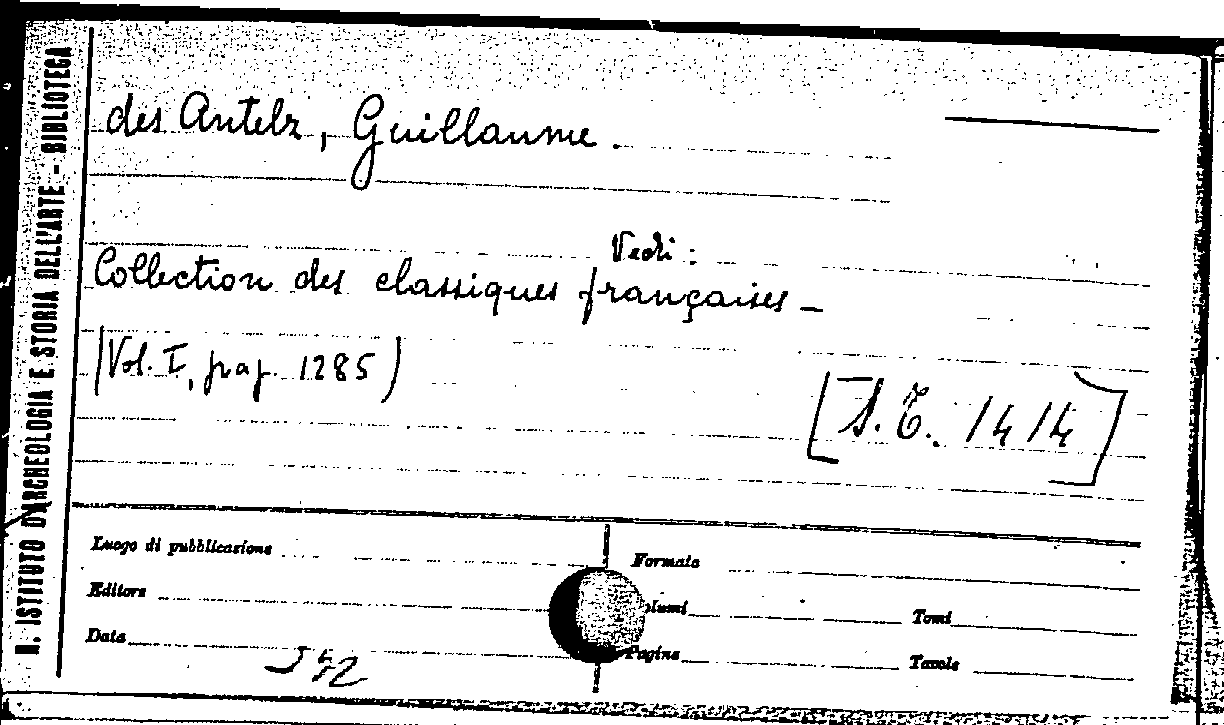 R. ISTITUTO D'ARCHEOLOGIA E STORIA DELL'ARTE - BIBLIOTECA
des Antelz, Guillaume.
Vedi:
Collection des classiques françaises -
(Vol. I, pag. 1285)
[S. T. 1414]
Luogo di pubblicazione
Formato
Editore
lumi
Tomi
Data
Pagine
Tavole